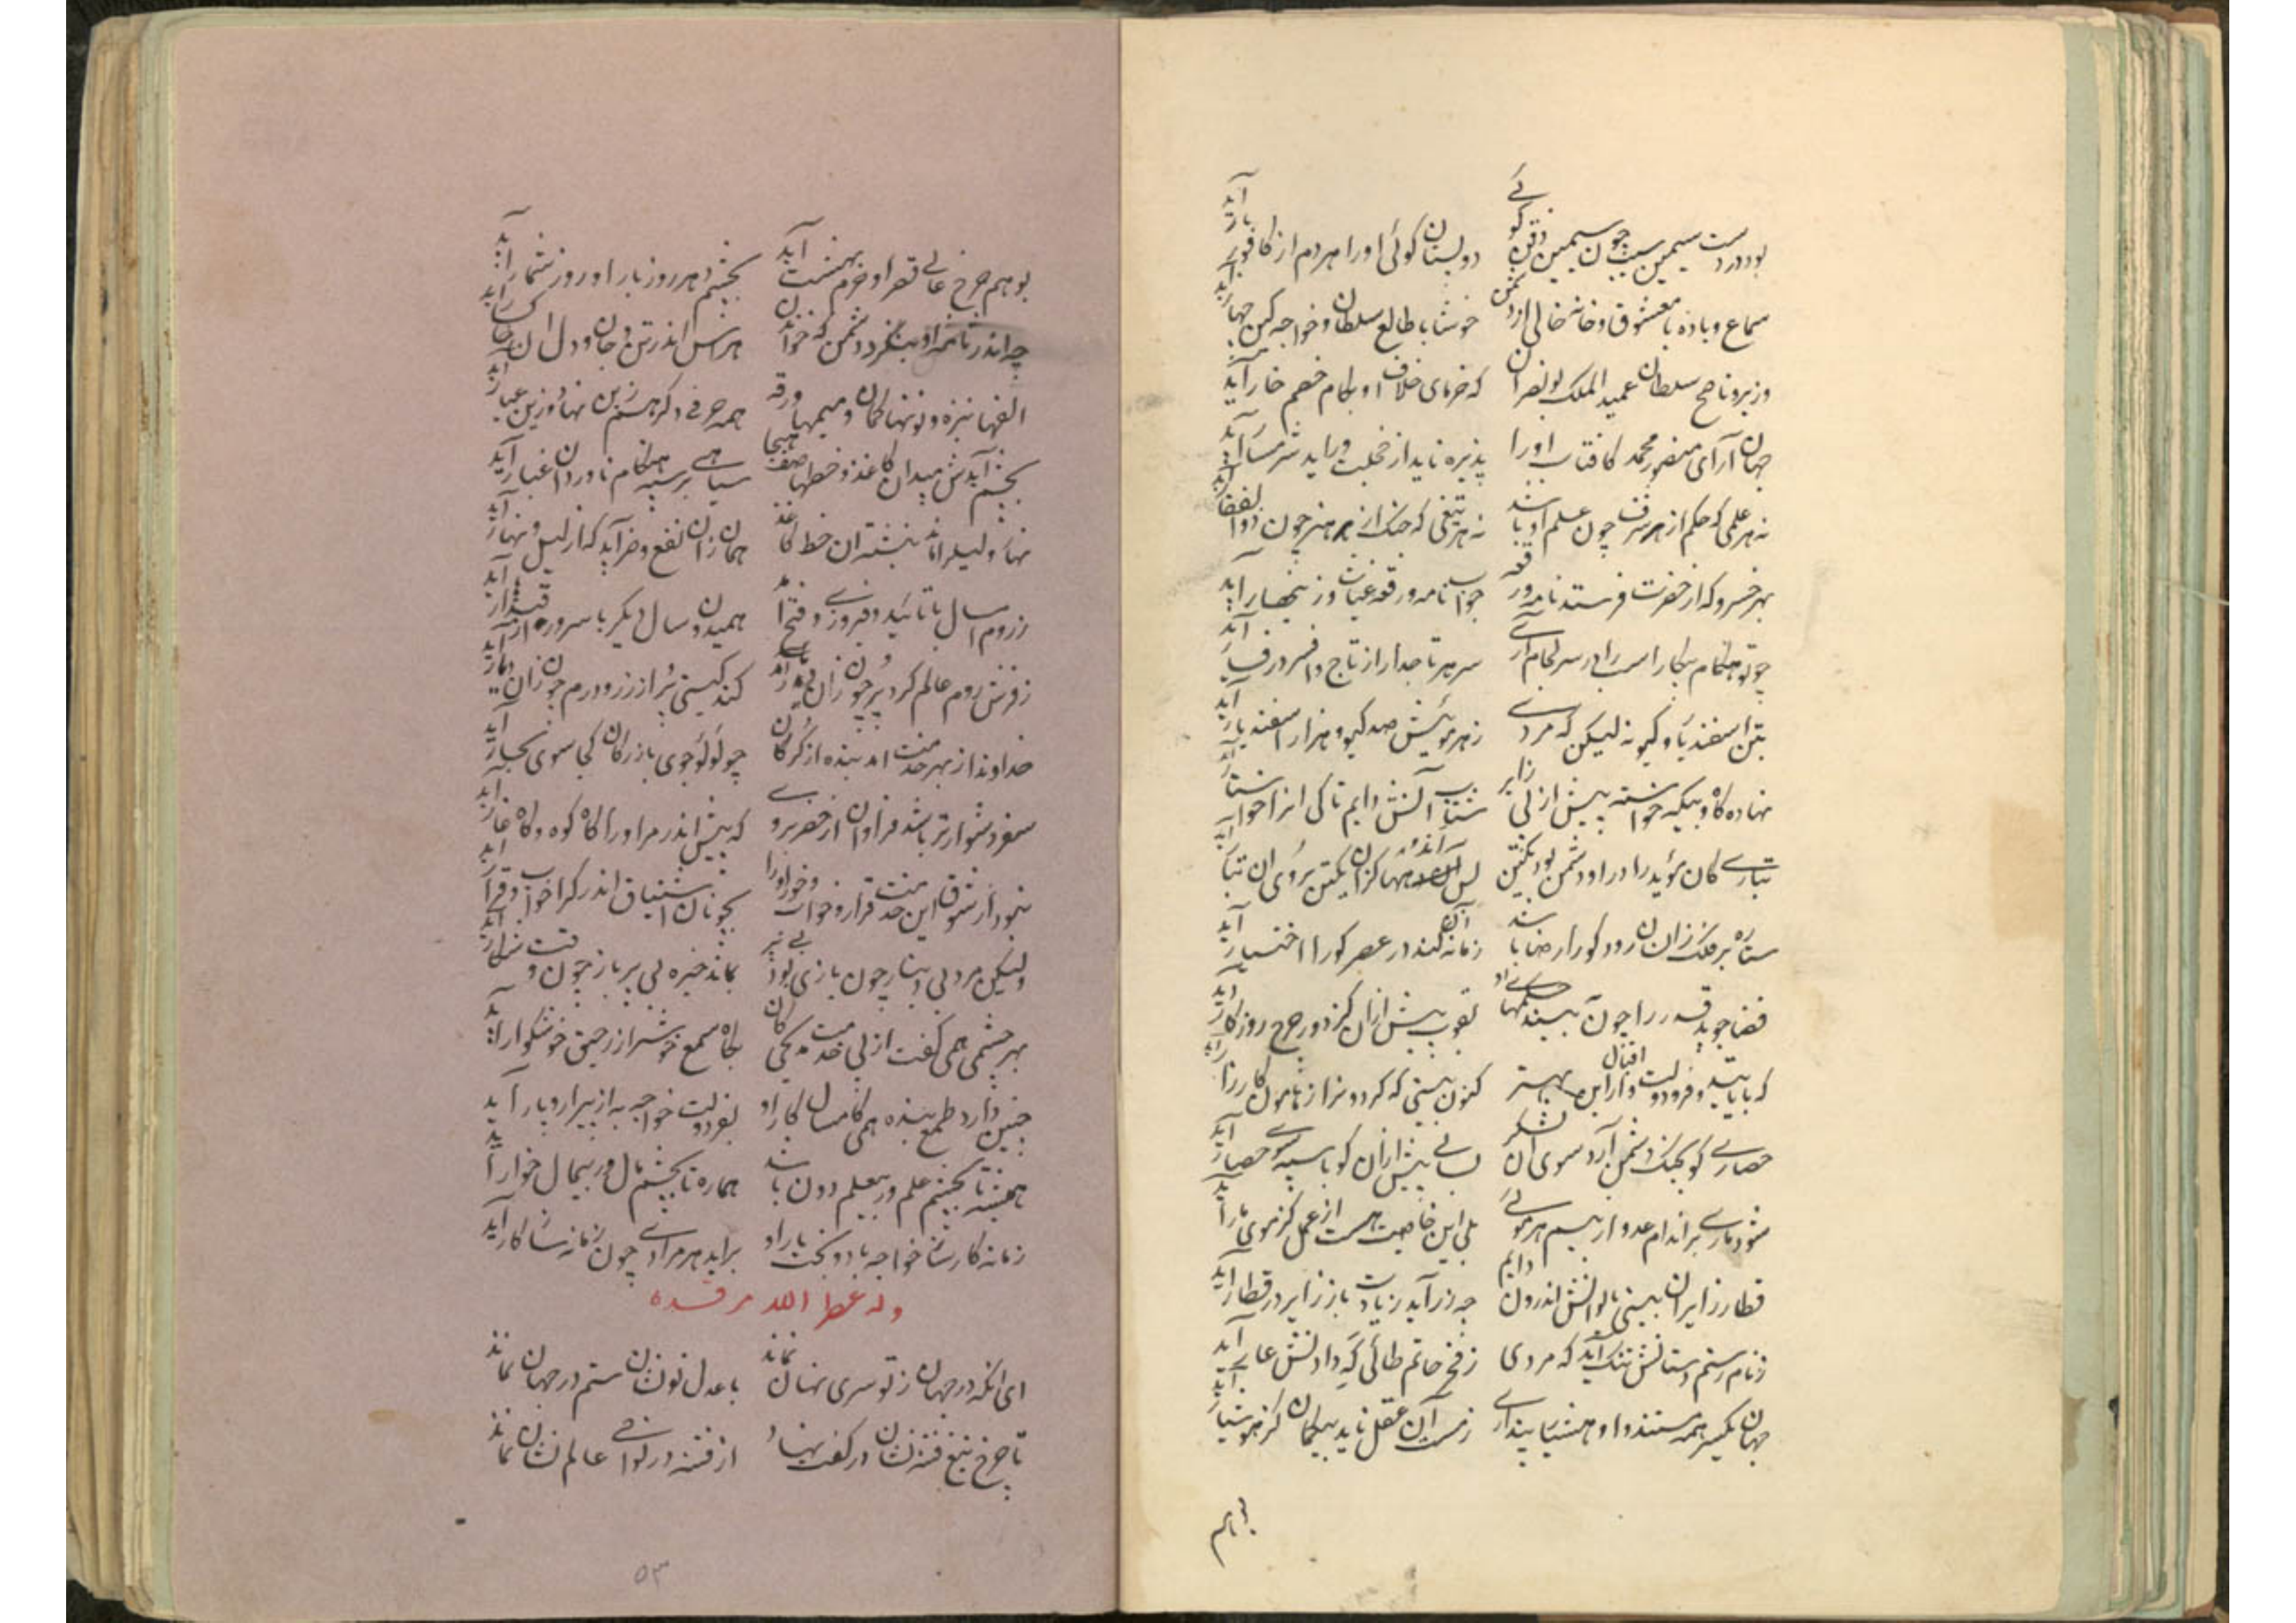 بود در دست سیمین سیب چون سیمین ذقن گوئے دو بستان گوئی او را هر دم از کافور بار آید
سماع و باده با معشوق و خانه خالی از دشمن خوشا با طالع سلطان و خواجه کین
وزیر و ناصح سلطان عمید الملک بونصر آن که خرمای خلاف او بکام خصم خار آید
جهان آرای منصور محمد کافتاب او را پذیره ناید از خجلت ور آید شرمسار آید
نه هر علمی که حکم از هر شرف چون علم او باشد نه هر تیغی که جنگ از هر هنر چون ذوالفقار آید
بهر خسرو که از حضرت فرستد نامه و رقعه جواب نامه و رقعه غیاث و زینهار آید
چو تو هنگام پیکار اسب را بر سر لجام آرے سر هر تاجدار از تاج و افسر در فسار آید
بتن اسفندیار و گیو نه لیکن که مردے ز هر مویش صد گیو و هزار اسفندیار آید
نهاده گاه و بیگه خواسته پیش از پی زایر شتاب آتش دایم تا کی از خواستار آید
تبارے کان مؤید را در او دشمن بود یکتن بس اندهها کزان یکتن بروی آن تبار آید
ستاره بر فلک زان رود کو را رضا باشد زمانه آن کند در عصر کو را اختیار آید
قضا جوید قدر را چون به بیند بقرب پیش ازان کز دور چرخ روزگار آید
که باتایید و فر و دولت و اقبال ازین بهتر کنون بینی که کردونرا ز هامون کارزار آید
حصارے کو بجنگ دشمن آرد سوی آن لشکر بسالے پیش ازان کو با سپه سوے حصار آید
شود مارے بر اندام عدو از بیم هر موئے بلی این خاصیت هست از عمل کز موی مار آید
قطار زایران بینی بایوانش اندرون دایم چه زر آید زیادت باز زایر در قطار آید
ز نام رستم دستانش ننگ آید که مردی ز فخر حاتم طائی که دادنش عار آید
جهان یکسر همه مستند و او هشیار پندارے ز مست آن عقل ناید بیگمان کز هوشیار آید
بوهم
بوهم چرخ عالے قصر او خرم بهشت آید بچشم دهر روز بار او روز شمار آید
چه اندر نامه او بنگرد دشمن که خواند آن هراس اندر تن و جان و دل آن
الفها نیزه و نونها کمان و میمها ورقه همه حرفے دگر هستم زین نهاد و زین عیار آید
بچشم آیدش میدان کاغذ و خطها صف هیجا سیاهے بر سپه هنگام ناورد آن غبار آید
نهار و لیل را ماند نبشته آن خط کاغذ همان زان نفع و ضر آید که از لیل و نهار آید
ز روم امسال با تائید و فیروزے و فتح آمد همیدون سال دیگر با سرور
ز فرش روم عالم کرد پر چون زان کند گیتی پر از زر و درم چون زان دیار آید
خداوندا ز بهر خدمت آمد بنده از گرگان چو لؤلؤجوی بازرگان کجا سوی بحار آید
سفر دشوارتر باشد فراوان از حضر بروے که پیش اندر مر او را گاه کوه و گاه غار آید
نمود از شوق این خدمت قرار و خواب و خور او را بچونان اشتیاق اندر کرا خواب و قرار آید
ولیکن مرد بی دینار چون بازی بود بے پر بماند خیره بی پر باز چون وقت شکار آید
بهر چشمی همی گفت از پی خدمت بگاه سمع خوشتر از رحیق خوشگوار آید
چنین دارد طمع بنده همی کامسال کار او بفر دولت خواجه به از پیرار و پار آید
همیشه تا بچشم علم در بیعلم دون باشد هماره تا بچشم مال در بیمال خوار آید
زمانه کارساز خواجه باد و بخت یار او برآید هر مرادے چون زمانه سازگار آید
وله عطر الله مرقده
ای آنکه در جهان ز تو سری نهان نماند با عدل تو نشان ستم در جهان نماند
تا چرخ تیغ فتنه نشان در کفت نهاد از فتنه در نواحے عالم نشان نماند
۵۳